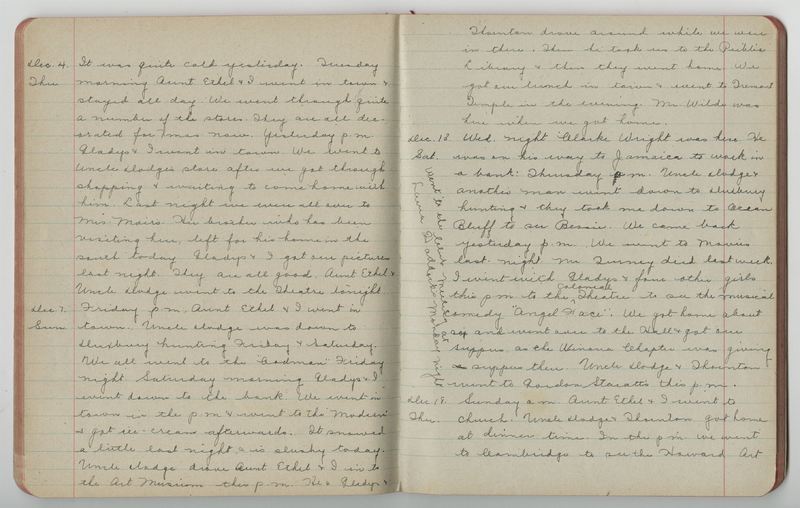 Dec. 4. It was quite cold yesterday. Tuesday
Thu. morning Aunt Ethel & I went in town &
stayed all day. We went through quite
a number of the stores. They are all dec-
orated for Xmas now. Yesterday p.m.
Gladys & I went in town. We went to
Uncle Dodge's store after we got through
shopping & waiting to come home with
him. Last night we were all over to
Mrs. Moirs. Her brother who has been
visiting here, left for his home in the
south today. Gladys & I got our pictures
last night. They are all good. Aunt Ethel &
Uncle Dodge went to the Theatre tonight.
Dec. 7. Friday p.m. Aunt Ethel & I went in
Sun. town. Uncle Dodge was down to
Duxbury hunting Friday & Saturday.
We all went to the "Codman" Friday
night. Saturday morning Gladys & I
went down to the bank. We went in
town in the p.m & went to the "Modern"
& got ice-cream afterwards. It snowed
a little last night & is slushy today.
Uncle Dodge drove Aunt Ethel & I in to
the Art Museum this p.m. He & Gladys &
Thornton drove around while we were
in there. Then he took us to the Public
Library & then they went home. We
got our lunch in town & went to Tremont
Temple in the evening. Mr. Wilde was
here when we got home.
Dec. 13. Wed. night Clarke Wright was here. He
Sat. was on his way to Jamaica to work in
a bank. Thursday p.m. Uncle Dodge &
another man went down to Duxbury
hunting & they took me down to Ocean
Bluff to see Bessie. We came back
yesterday p.m. We went to Movies
last night. Mr. died last week.
I went with Gladys & four other girls
this p.m to the Colonial Theatre to see the musical
comedy "Angel Face". We got home about
six and went over to the Hall & got our
suppers as the Winona Chapter was giving
a supper there. Uncle Dodge & Thornton
went to Gordon this p.m.
went to the Club Meeting at
Monday night
Dec. 18. Sunday a.m. Aunt Ethel & I went to
Thu. church. Uncle Dodge & Thornton got home
at dinner time. In the p.m. we went
to Cambridge to see the Harvard Art